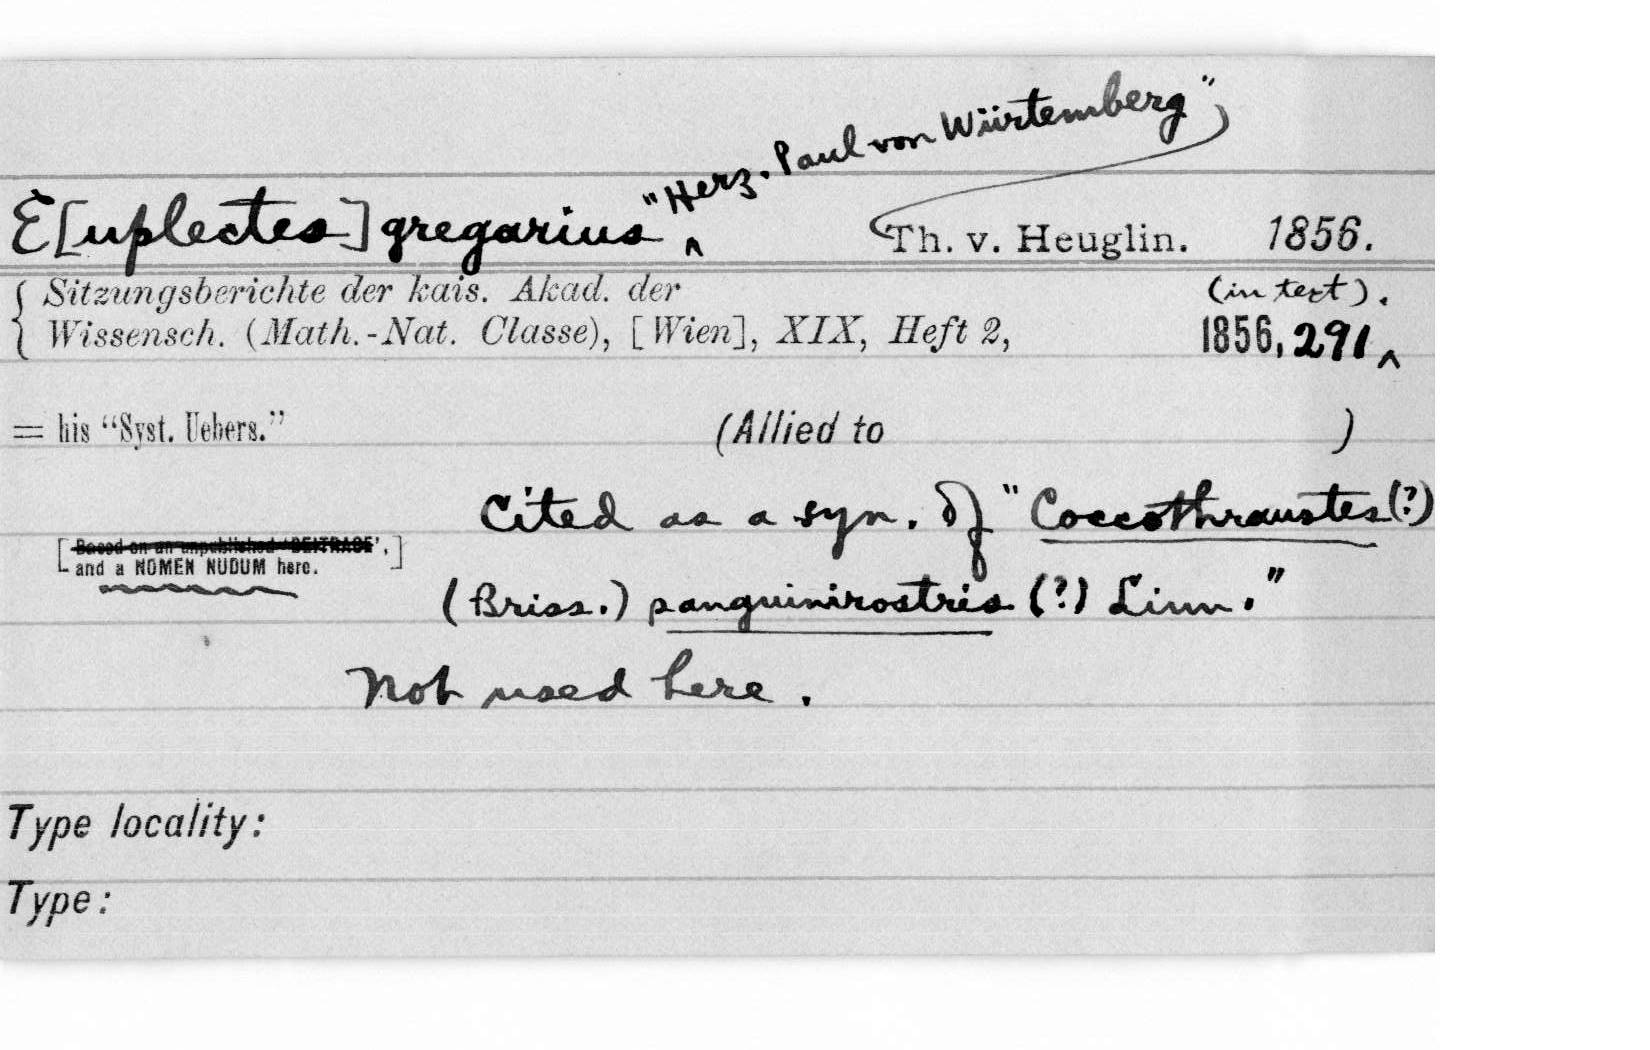 "Herz. Paul von Würtemberg"
E[uplectes] gregarius ^ Th. v. Heuglin. 1856.
Sitzungsberichte der kais. Akad. der (in text).
Wissensch. (Math.-Nat. Classe), [Wien], XIX, Heft 2, 1856, 291 ^
= his "Syst. Uebers." (Allied to )
Cited as a syn. of "Coccothraustes (?)
[Based on an unpublished 'BEITRAGE',]
and a NOMEN NUDUM here.
(Briss.) sanguinirostris (?) Linn."
Not used here.
Type locality:
Type: